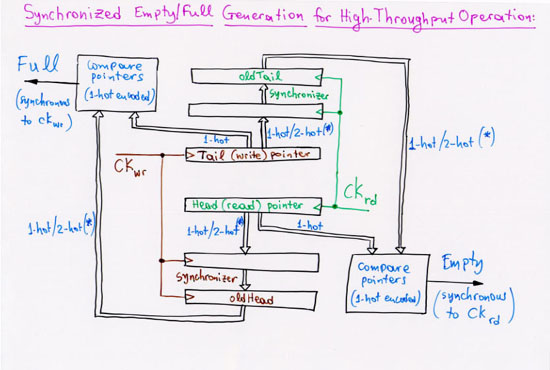 Synchronized Empty/Full Generation for High-Throughput Operation:
Full
(synchronous
to CKwr)
Compare
pointers
(1-hot encoded)
oldTail
synchronizer
1-hot
1-hot/2-hot(*)
1-hot/2-hot(*)
CKwr
Tail (write) pointer
Head (read) pointer
CKrd
1-hot/2-hot(*)
1-hot/2-hot(*)
1-hot
synchronizer
oldHead
Compare
pointers
(1-hot encoded)
Empty
(synchronous
to CKrd)